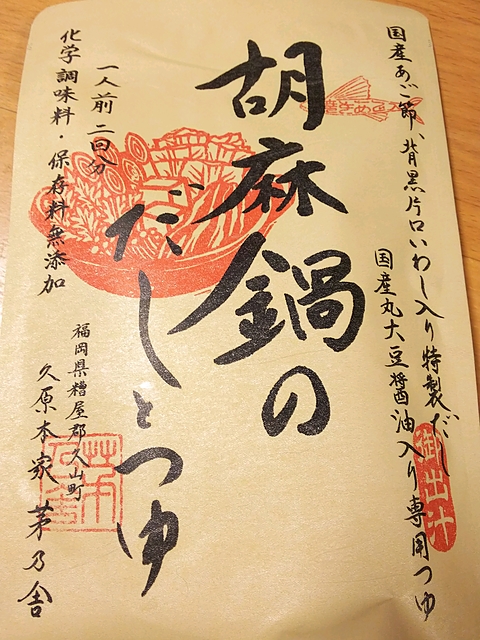 国産あご節、背黒片口いわし入り特製だし
国産丸大豆醤油入り専用つゆ
御出汁
胡麻鍋の
だしとつゆ
一人前 二回分
化学調味料・保存料無添加
福岡県糟屋郡久山町
久原本家 茅乃舎